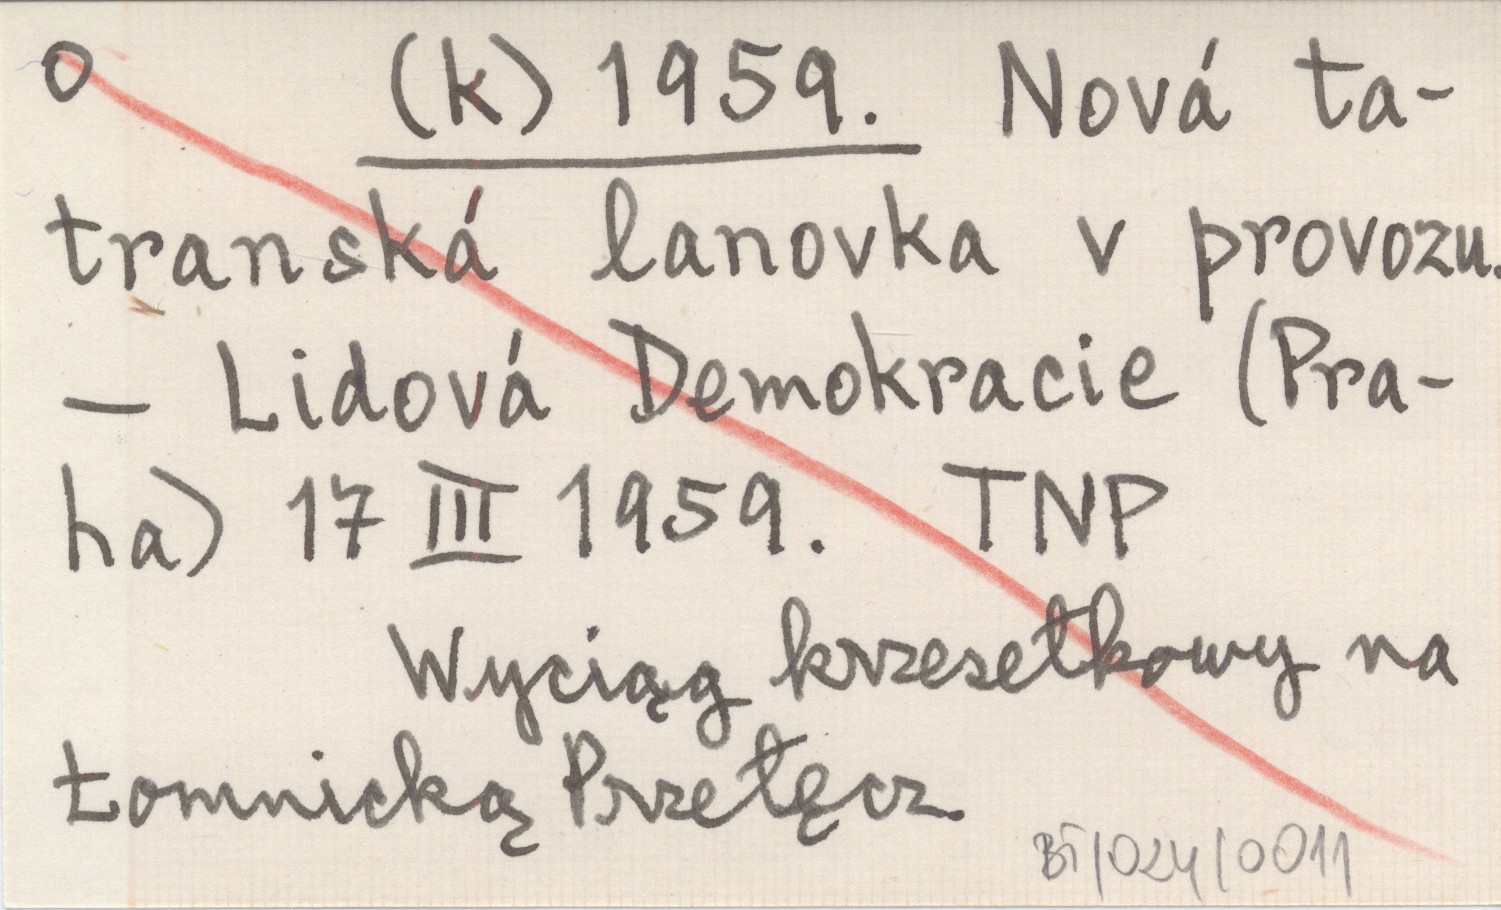 o (k) 1959. Nová ta-
transká lanovka v provozu.
— Lidová Demokracie (Pra-
ha) 17 III 1959. TNP
Wyciąg krzesełkowy na
Łomnicką Przełęcz.
BT/024/0011